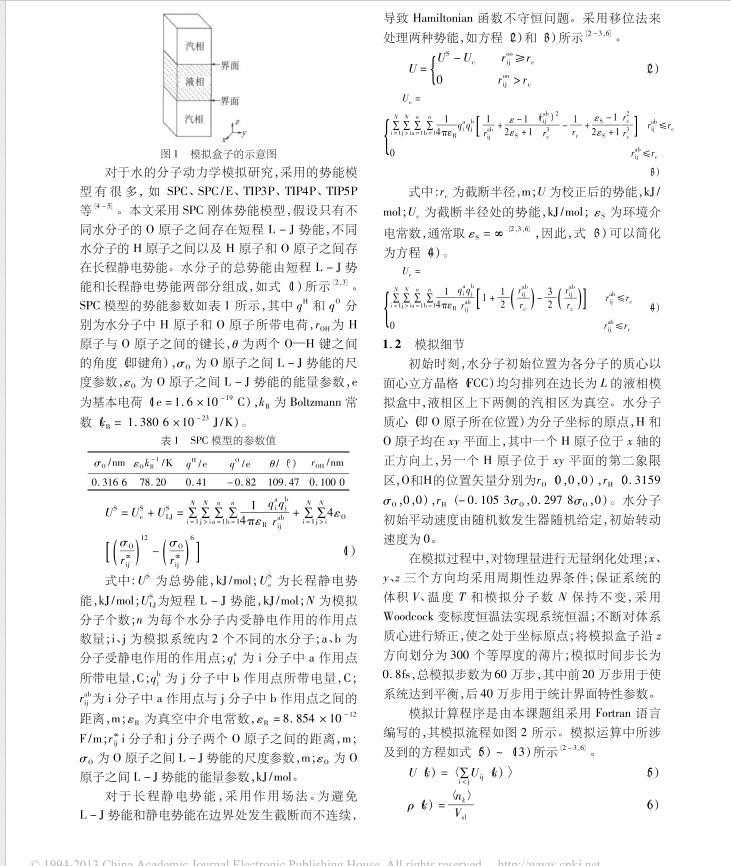 汽相
界面
液相
界面
汽相
z
y
x
图1 模拟盒子的示意图
对于水的分子动力学模拟研究,采用的势能模
型有很多,如 SPC、SPC/E、TIP3P、TIP4P、TIP5P
等[4-5]。本文采用SPC刚体势能模型,假设只有不
同水分子的O原子之间存在短程L-J势能,不同
水分子的H原子之间以及H原子和O原子之间存
在长程静电势能。水分子的总势能由短程L-J势
能和长程静电势能两部分组成,如式(1)所示[2,3]。
SPC模型的势能参数如表1所示,其中q^H和q^O分
别为水分子中H原子和O原子所带电荷,r_OH为H
原子与O原子之间的键长,θ为两个O—H键之间
的角度(即键角),σ_O为O原子之间L-J势能的尺
度参数,ε_O为O原子之间L-J势能的能量参数,e
为基本电荷(1e=1.6×10^-19 C),k_B为Boltzmann常
数(k_B=1.380 6×10^-23 J/K)。
表1 SPC模型的参数值
σ_O/nm ε_O k_B^-1/K q^H/e q^O/e θ/(°) r_OH/nm
0.316 6 78.20 0.41 -0.82 109.47 0.100 0
U^S = U_e^S + U_LJ^S = Σ_{i=1}^N Σ_{j>i}^N Σ_{a=1}^n Σ_{b=1}^n (1/4πε_R)(q_i^a q_j^b / r_ij^ab) + Σ_{i=1}^N Σ_{j>i}^N 4ε_O
[(σ_O/r_ij^∞)^12 - (σ_O/r_ij^∞)^6] (1)
式中:U^S为总势能,kJ/mol;U_e^S为长程静电势
能,kJ/mol;U_LJ^S为短程L-J势能,kJ/mol;N为模拟
分子个数;n为每个水分子内受静电作用的作用点
数量;i、j为模拟系统内2个不同的水分子;a、b为
分子受静电作用的作用点;q_i^a为i分子中a作用点
所带电量,C;q_j^b为j分子中b作用点所带电量,C;
r_ij^ab为i分子中a作用点与j分子中b作用点之间的
距离,m;ε_R为真空中介电常数,ε_R=8.854×10^-12
F/m;r_ij^∞i分子和j分子两个O原子之间的距离,m;
σ_O为O原子之间L-J势能的尺度参数,m;ε_O为O
原子之间L-J势能的能量参数,kJ/mol。
对于长程静电势能,采用作用场法。为避免
L-J势能和静电势能在边界处发生截断而不连续,
导致Hamiltonian函数不守恒问题。采用移位法来
处理两种势能,如方程(2)和(3)所示[2-3,6]。
U = { U^S - U_c r_ij^oo ≥ r_c
0 r_ij^oo > r_c (2)
U_e =
{ Σ_{i=1}^N Σ_{j>i}^N Σ_{a=1}^n Σ_{b=1}^n (1/4πε_R) q_i^a q_j^b [1/r_ij^ab + (ε-1)/(2ε_S+1) (r_ij^ab)^2/r_c^3 - 1/r_c + (ε_S-1)/(2ε_S+1) r_c^2/r_c^3] r_ij^ab ≤ r_c
0 r_ij^ab ≤ r_c
(3)
式中:r_c为截断半径,m;U为校正后的势能,kJ/
mol;U_c为截断半径处的势能,kJ/mol;ε_S为环境介
电常数,通常取ε_S=∞[2,3,6],因此,式(3)可以简化
为方程(4)。
U_e =
{ Σ_{i=1}^N Σ_{j>i}^N Σ_{a=1}^n Σ_{b=1}^n (1/4πε_R)(q_i^a q_j^b / r_ij^ab)[1 + 1/2 (r_ij^ab/r_c) - 3/2 (r_ij^ab/r_c)] r_ij^ab ≤ r_c
0 r_ij^ab ≤ r_c (4)
1.2 模拟细节
初始时刻,水分子初始位置为各分子的质心以
面心立方晶格(FCC)均匀排列在边长为L的液相模
拟盒中,液相区上下两侧的汽相区为真空。水分子
质心(即O原子所在位置)为分子坐标的原点,H和
O原子均在xy平面上,其中一个H原子位于x轴的
正方向上,另一个H原子位于xy平面的第二象限
区,O和H的位置矢量分别为r_O(0,0,0),r_H(0.3159
σ_O,0,0),r_H(-0.105 3σ_O,0.297 8σ_O,0)。水分子
初始平动速度由随机数发生器随机给定,初始转动
速度为0。
在模拟过程中,对物理量进行无量纲化处理;x、
y、z三个方向均采用周期性边界条件;保证系统的
体积V、温度T和模拟分子数N保持不变,采用
Woodcock变标度恒温法实现系统恒温;不断对体系
质心进行矫正,使之处于坐标原点;将模拟盒子沿z
方向划分为300个等厚度的薄片;模拟时间步长为
0.8fs,总模拟步数为60万步,其中前20万步用于使
系统达到平衡,后40万步用于统计界面特性参数。
模拟计算程序是由本课题组采用Fortran语言
编写的,其模拟流程如图2所示。模拟运算中所涉
及到的方程如式(5)~(13)所示[2-3,6]。
U(k) = 〈Σ_{i<j} U_ij(k)〉 (5)
ρ(k) = 〈n_k〉/V_sl (6)
© 1994-2013 China Academic Journal Electronic Publishing House. All rights reserved. http://www.cnki.net